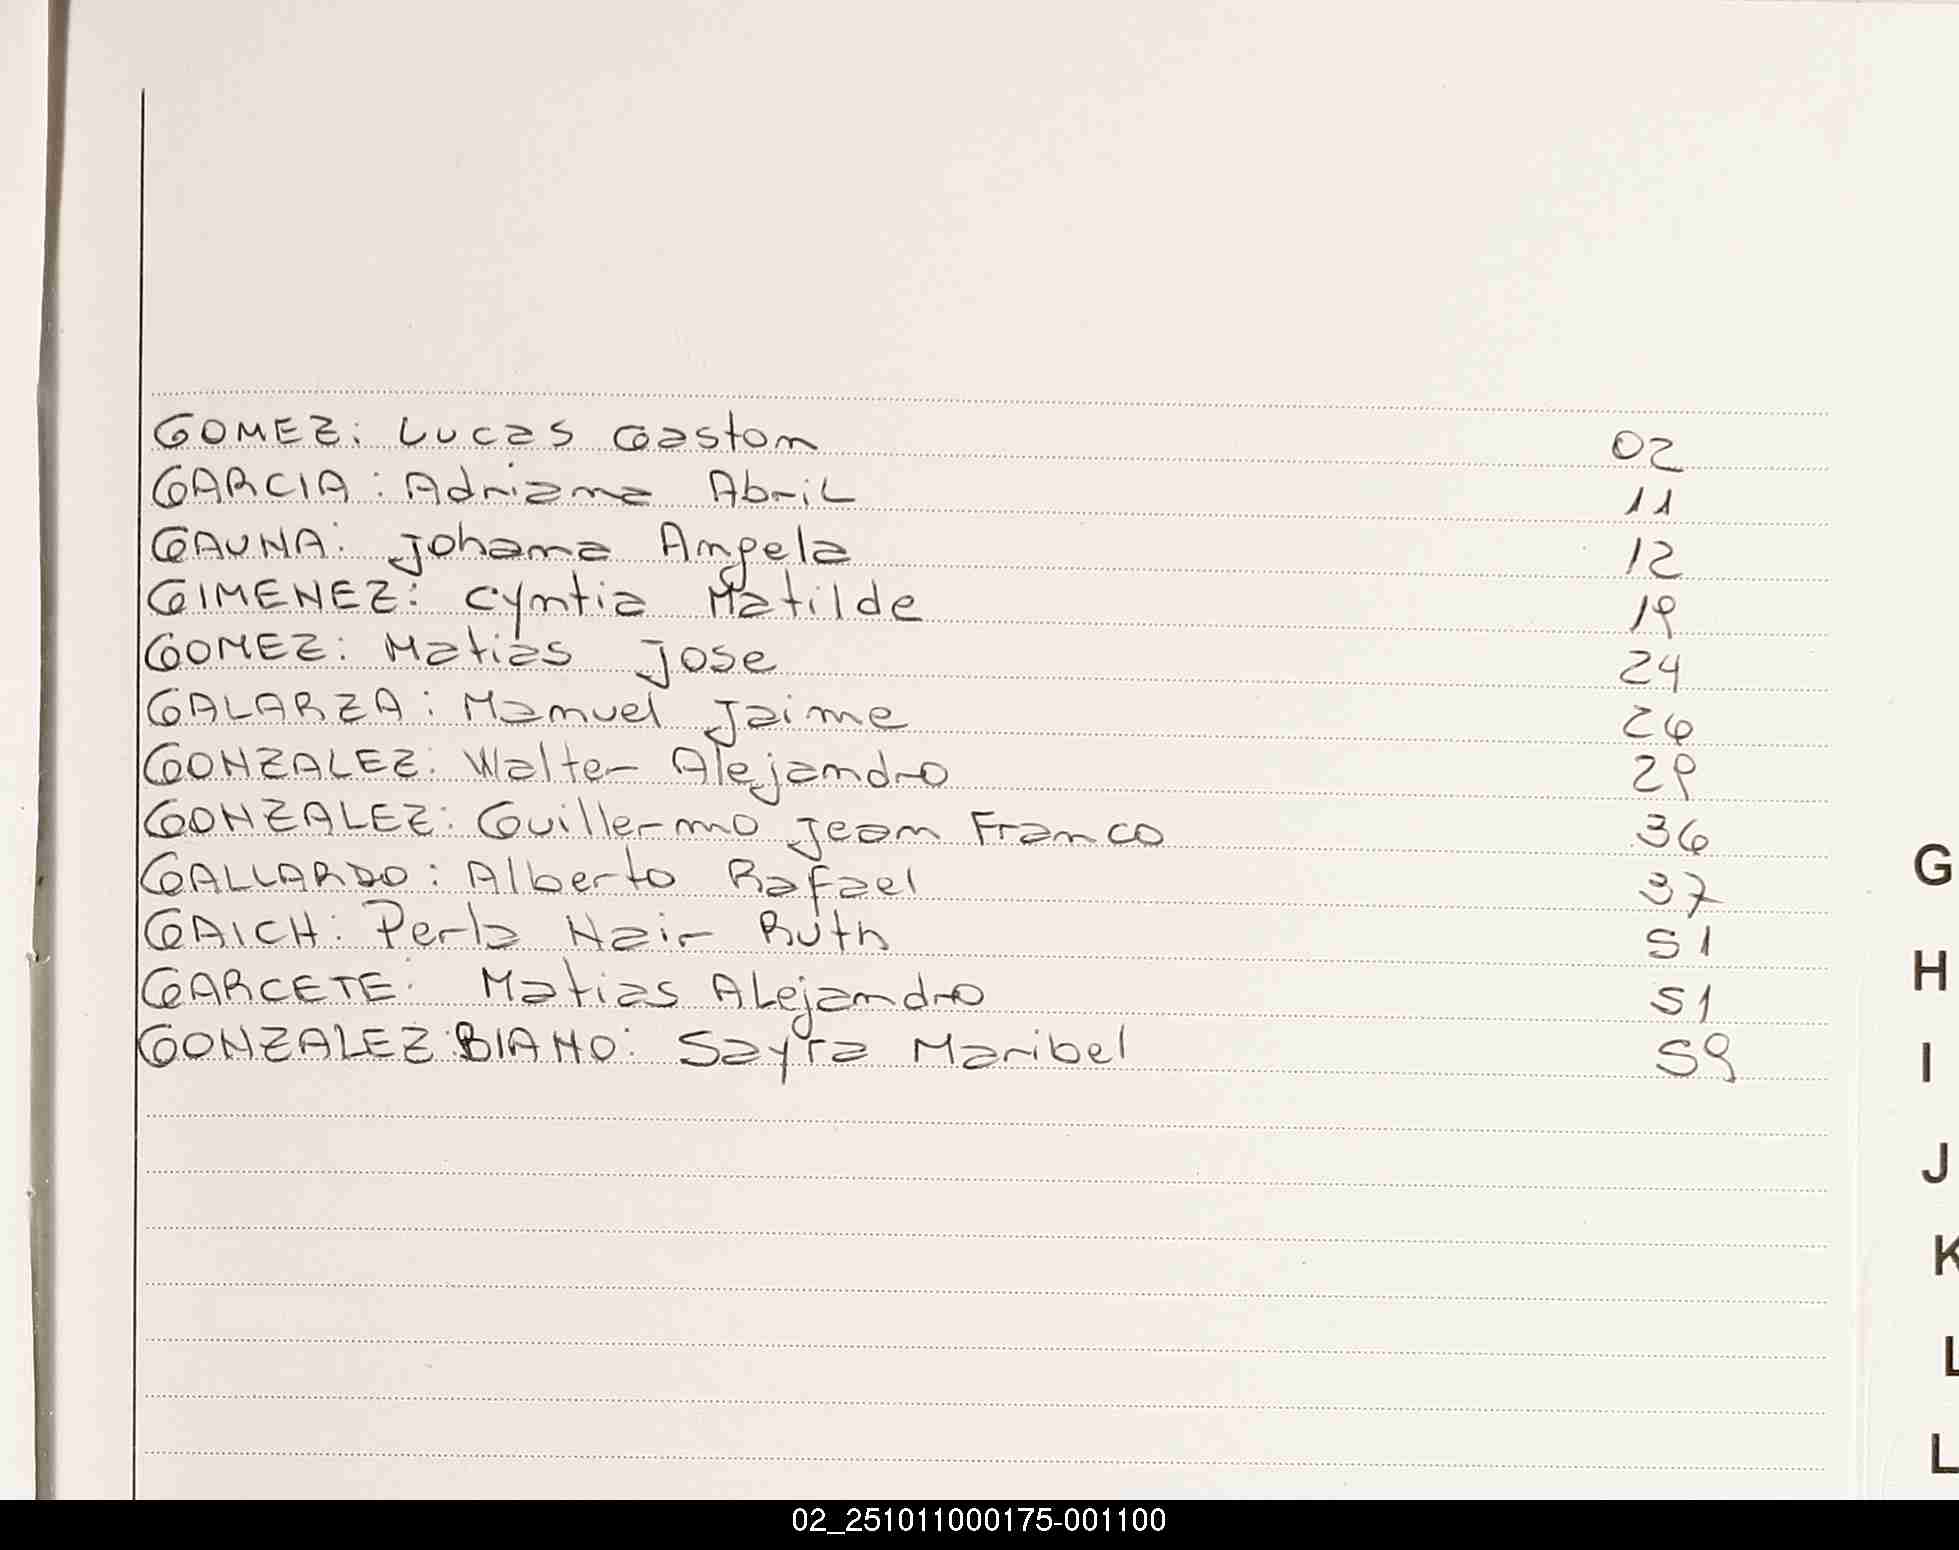 GOMEZ: Lucas Gaston 02
GARCIA: Adriana Abril 11
GAUNA: Johana Angela 12
GIMENEZ: Cyntia Matilde 19
GOMEZ: Matias Jose 24
GALARZA: Manuel Jaime 26
GONZALEZ: Walter Alejandro 29
GONZALEZ: Guillermo Jean Franco 36
GALLARDO: Alberto Rafael 37
GAICH: Perla Nair Ruth 51
GARCETE: Matias Alejandro 51
GONZALEZ BIANO: Sayra Maribel 59
G
H
I
J
K
L
L
02_251011000175-001100